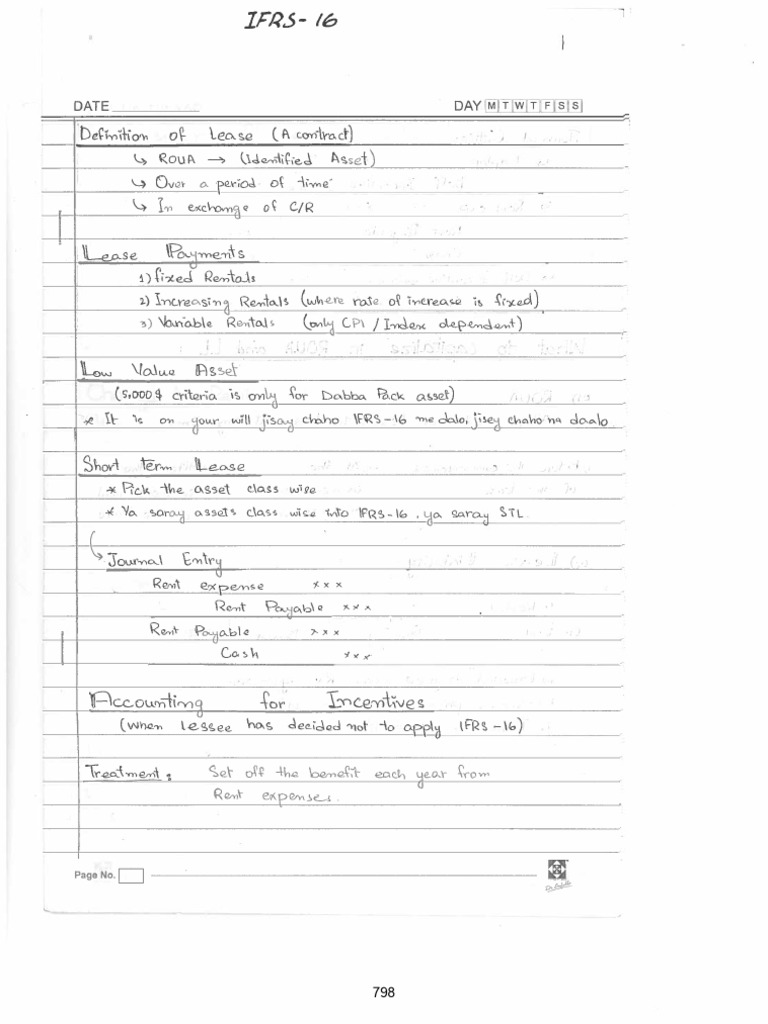 IFRS-16
DATE
DAY M T W T F S S
Definition of Lease (A contract)
↳ ROUA → (Identified Asset)
↳ Over a period of time
↳ In exchange of C/R
Lease Payments
1) fixed Rentals
2) Increasing Rentals (where rate of increase is fixed)
3) Variable Rentals (only CPI / Index dependent)
Low Value Asset
(5,000$ criteria is only for Dabba Pack asset)
* It is on your will jisay chaho IFRS-16 me dalo, jisey chaho na daalo
Short term Lease
* Pick the asset class wise
* Ya saray assets class wise into IFRS-16, ya saray STL
↳ Journal Entry
Rent expense xxx
Rent Payable xxx
Rent Payable xxx
Cash xxx
Accounting for Incentives
(when lessee has decided not to apply IFRS-16)
Treatment: Set off the benefit each year from
Rent expenses.
Page No.
798